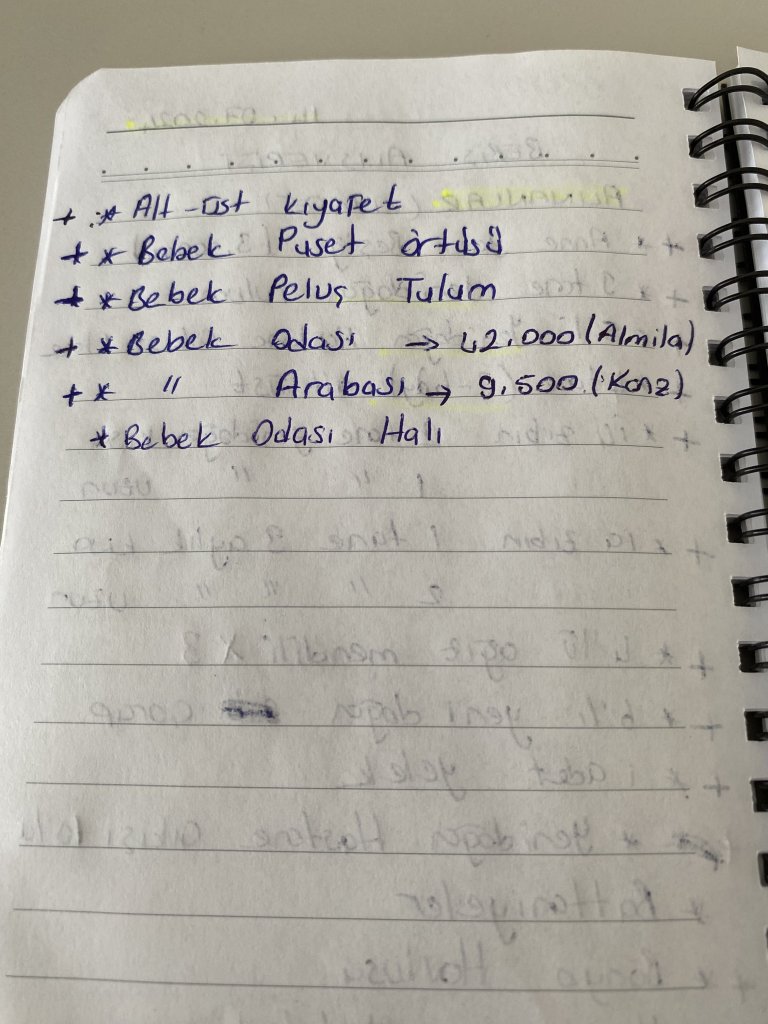 + * Alt-üst kıyafet
+ * Bebek Puset örtüsü
+ * Bebek Peluş Tulum
+ * Bebek Odası → 42.000 (Almila)
+ * " Arabası → 9.500 (Kanz)
* Bebek Odası Halı